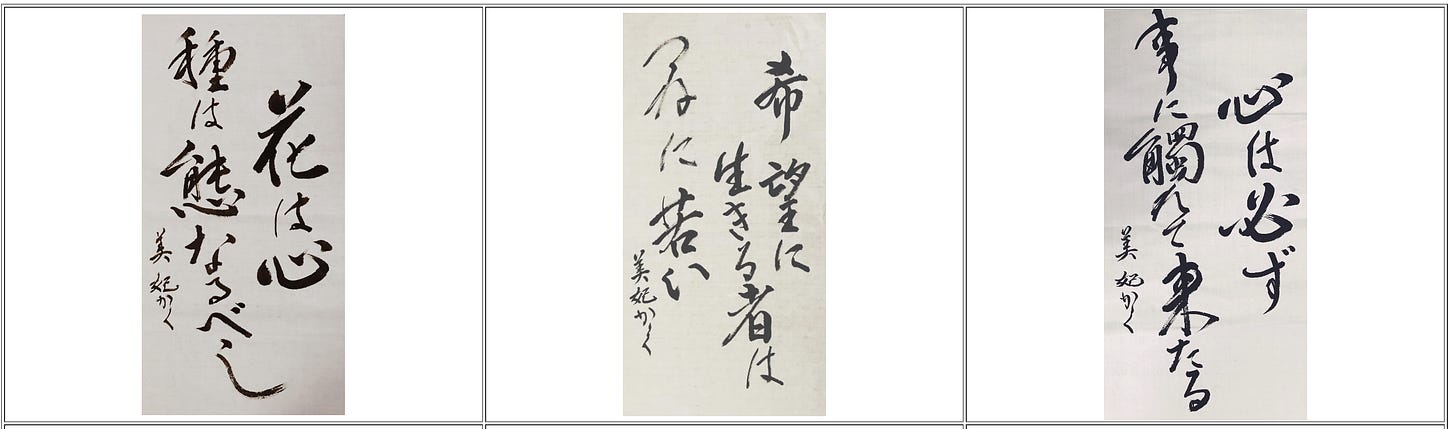 花は心
種は態なるべし
美妃かく
希望に
生きる者は
常に若い
美妃かく
心は必ず
事に觸れて来たる
美妃かく